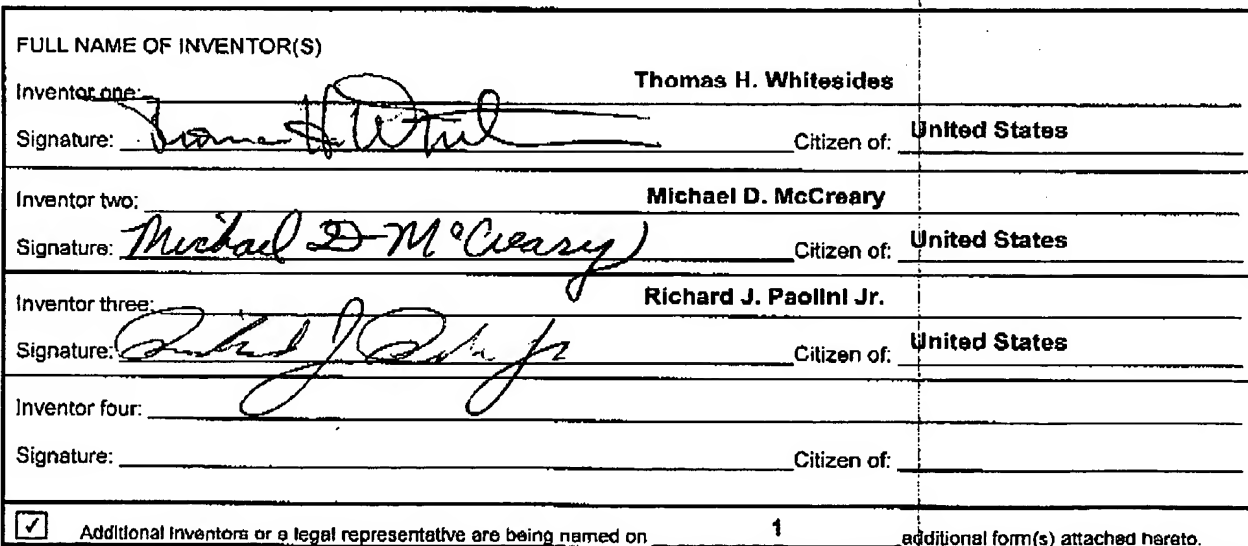 FULL NAME OF INVENTOR(S)
Inventor one: Thomas H. Whitesides
Signature: Citizen of: United States
Inventor two: Michael D. McCreary
Signature: Michael D McCreary Citizen of: United States
Inventor three: Richard J. Paolini Jr.
Signature: Citizen of: United States
Inventor four:
Signature: Citizen of:
✓ Additional inventors or a legal representative are being named on 1 additional form(s) attached hereto.